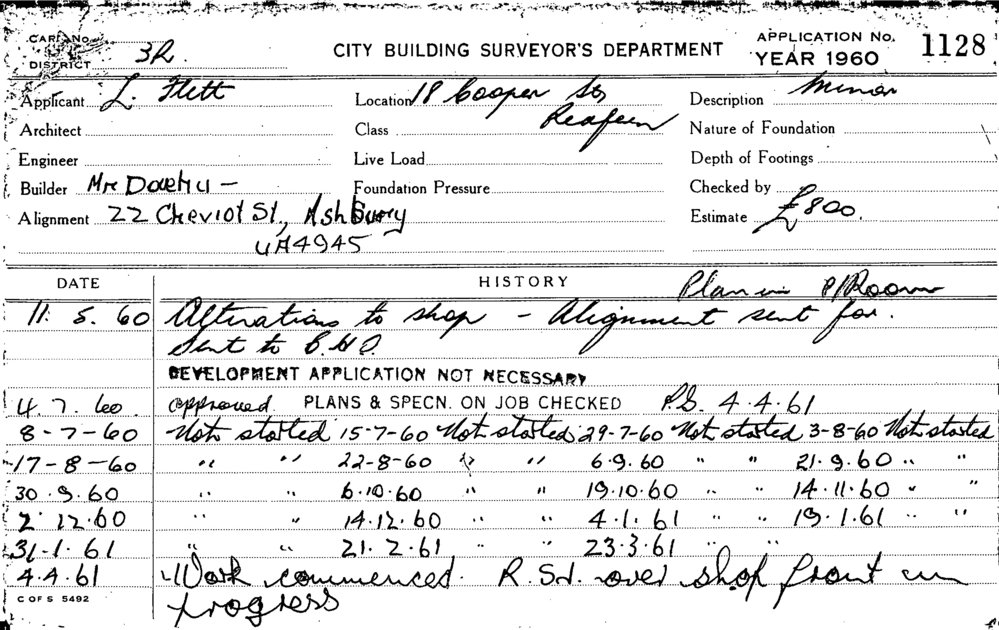 CARD No. 3R. CITY BUILDING SURVEYOR'S DEPARTMENT APPLICATION No. 1128
DISTRICT YEAR 1960
Applicant L. Flett Location 18 Cooper St, Description Minor
Architect Class Redfern Nature of Foundation
Engineer Live Load Depth of Footings
Builder Mr - Foundation Pressure Checked by
Alignment 22 Cheviot St, Ashbury Estimate £800.
UA4945
DATE HISTORY Plan in P/Room
11. 5. 60 Alterations to shop - Alignment sent for.
Sent to
DEVELOPMENT APPLICATION NOT NECESSARY
4. 7. 60. approved PLANS & SPECN. ON JOB CHECKED 4.4.61
8-7-60 Not started 15-7-60 Not started 29-7-60 Not started 3-8-60 Not started
17-8-60 " " 22-8-60 " " 6.9.60 " " 21.9.60 " "
30.9.60 " " 6.10.60 " " 19.10.60 " " 14.11.60 " "
2.12.60 " " 14.12.60 " " 4.1.61 " " 19.1.61 " "
31.1.61 " " 21.2.61 " " 23.3.61 " "
4.4.61 Work commenced. over shop front in
C OF S 5492 progress